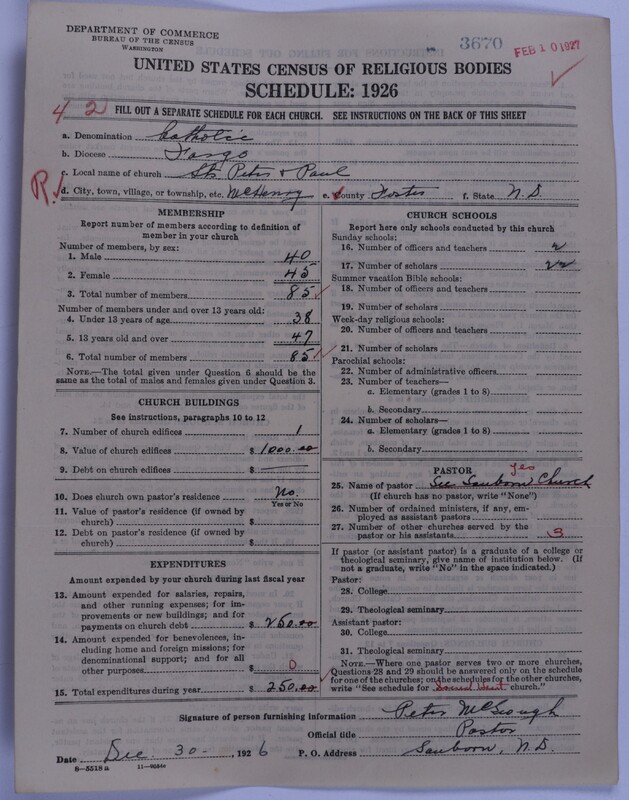 DEPARTMENT OF COMMERCE
BUREAU OF THE CENSUS
WASHINGTON
3670
FEB 10 1927
UNITED STATES CENSUS OF RELIGIOUS BODIES
SCHEDULE: 1926
4 2
FILL OUT A SEPARATE SCHEDULE FOR EACH CHURCH. SEE INSTRUCTIONS ON THE BACK OF THIS SHEET
a. Denomination Catholic
b. Diocese Fargo
c. Local name of church Sts Peter & Paul
R.
d. City, town, village, or township, etc. McHenry e. County Foster f. State N.D.
MEMBERSHIP
Report number of members according to definition of member in your church
Number of members, by sex:
1. Male 40
2. Female 45
3. Total number of members 85
Number of members under and over 13 years old:
4. Under 13 years of age 38
5. 13 years old and over 47
6. Total number of members 85
NOTE.—The total given under Question 6 should be
same as the total of males and females given under Question 3.
CHURCH BUILDINGS
See instructions, paragraphs 10 to 12
7. Number of church edifices 1
8. Value of church edifices $ 1000.00
9. Debt on church edifices $
10. Does church own pastor's residence No.
Yes or No
11. Value of pastor's residence (if owned by
church) $
12. Debt on pastor's residence (if owned by
church) $
EXPENDITURES
Amount expended by your church during last fiscal year
13. Amount expended for salaries, repairs,
and other running expenses; for im-
provements or new buildings; and for
payments on church debt $ 250.00
14. Amount expended for benevolences, in-
cluding home and foreign missions; for
denominational support; and for all
other purposes $ 0
15. Total expenditures during year $ 250.00
CHURCH SCHOOLS
Report here only schools conducted by this church
Sunday schools:
16. Number of officers and teachers 2
17. Number of scholars
Summer vacation Bible schools:
18. Number of officers and teachers
19. Number of scholars
Week-day religious schools:
20. Number of officers and teachers
21. Number of scholars
Parochial schools:
22. Number of administrative officers
23. Number of teachers—
a. Elementary (grades 1 to 8)
b. Secondary
24. Number of scholars—
a. Elementary (grades 1 to 8)
b. Secondary
PASTOR
yes
25. Name of pastor See Sanborn Church
(If church has no pastor, write "None")
26. Number of ordained ministers, if any, em-
ployed as assistant pastors
27. Number of other churches served by the
pastor or his assistants 3
If pastor (or assistant pastor) is a graduate of a college or
theological seminary, give name of institution below. (If
not a graduate, write "No" in the space indicated.)
Pastor:
28. College
29. Theological seminary
Assistant pastor:
30. College
31. Theological seminary
NOTE.—Where one pastor serves two or more churches,
Questions 28 and 29 should be answered only on the schedule
for one of the churches; on the schedules for the other churches,
write "See schedule for Sacred Heart church."
Signature of person furnishing information Peter McGeough
Official title Pastor
Date Dec. 30. 1926 P. O. Address Sanborn, N.D.
8-5518a